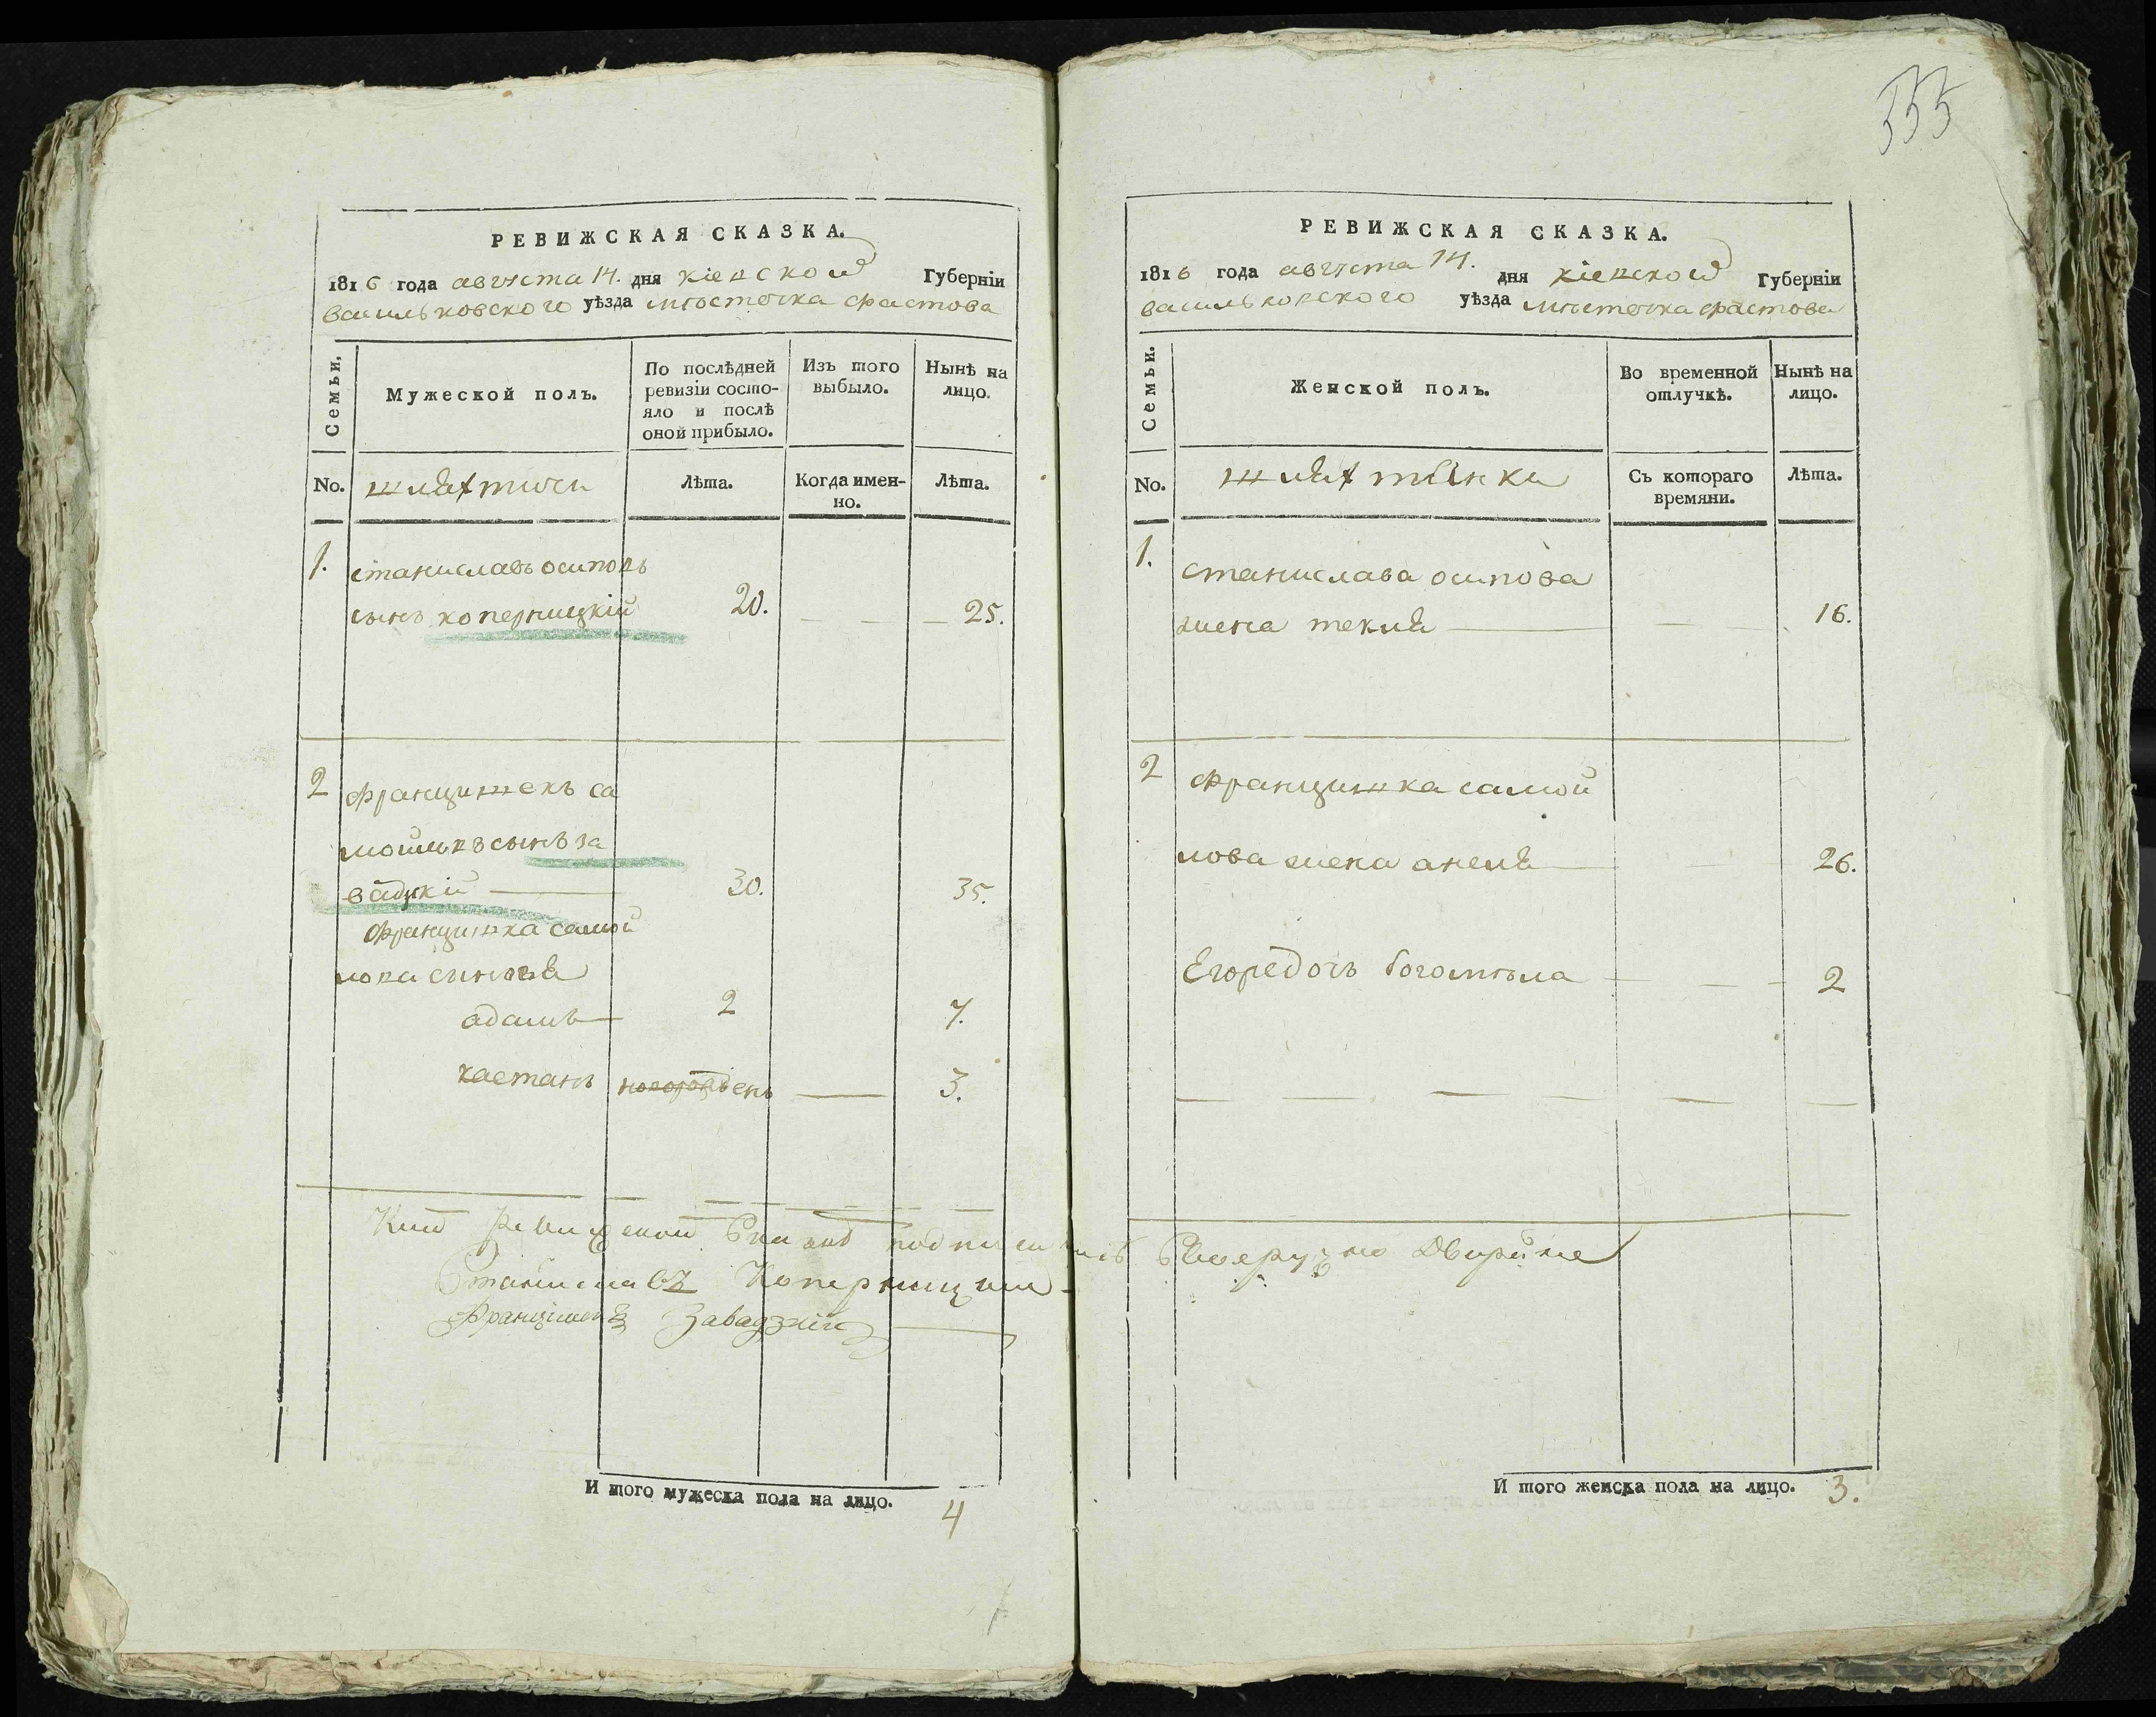 555
РЕВИЖСКАЯ СКАЗКА.
1816 года августа 14. дня кіевской Губерніи
васильковского уѣзда мѣстечка фастова
Семьи.
Мужеской полъ.
По послѣдней ревизіи состояло и послѣ оной прибыло.
Изъ того выбыло.
Нынѣ на лицо.
No. шляхтичи Лѣта. Когда именно. Лѣта.
1. станиславъ осиповъ
сынъ коперницкій 20. 25.
2 францишекъ са
мойловъ сынъ за
вадzкій 30. 35.
францишка самой
лова сыновья
адамъ 2 7.
каетанъ новорожденъ 3.
Станиславъ Коперницкий
Францишекъ Завадзкій
И того мужеска пола на лицо. 4
РЕВИЖСКАЯ СКАЗКА.
1816 года августа 14. дня кіевской Губерніи
васильковского уѣзда мѣстечка фастова
Семьи.
Женской полъ.
Во временной отлучкѣ.
Нынѣ на лицо.
No. шляхтянки Съ котораго времяни. Лѣта.
1. станислава осипова
жена текля 16.
2 францишка самой
лова жена анеля 26.
Егоредочь богомѣла 2
И того женска пола на лицо. 3.